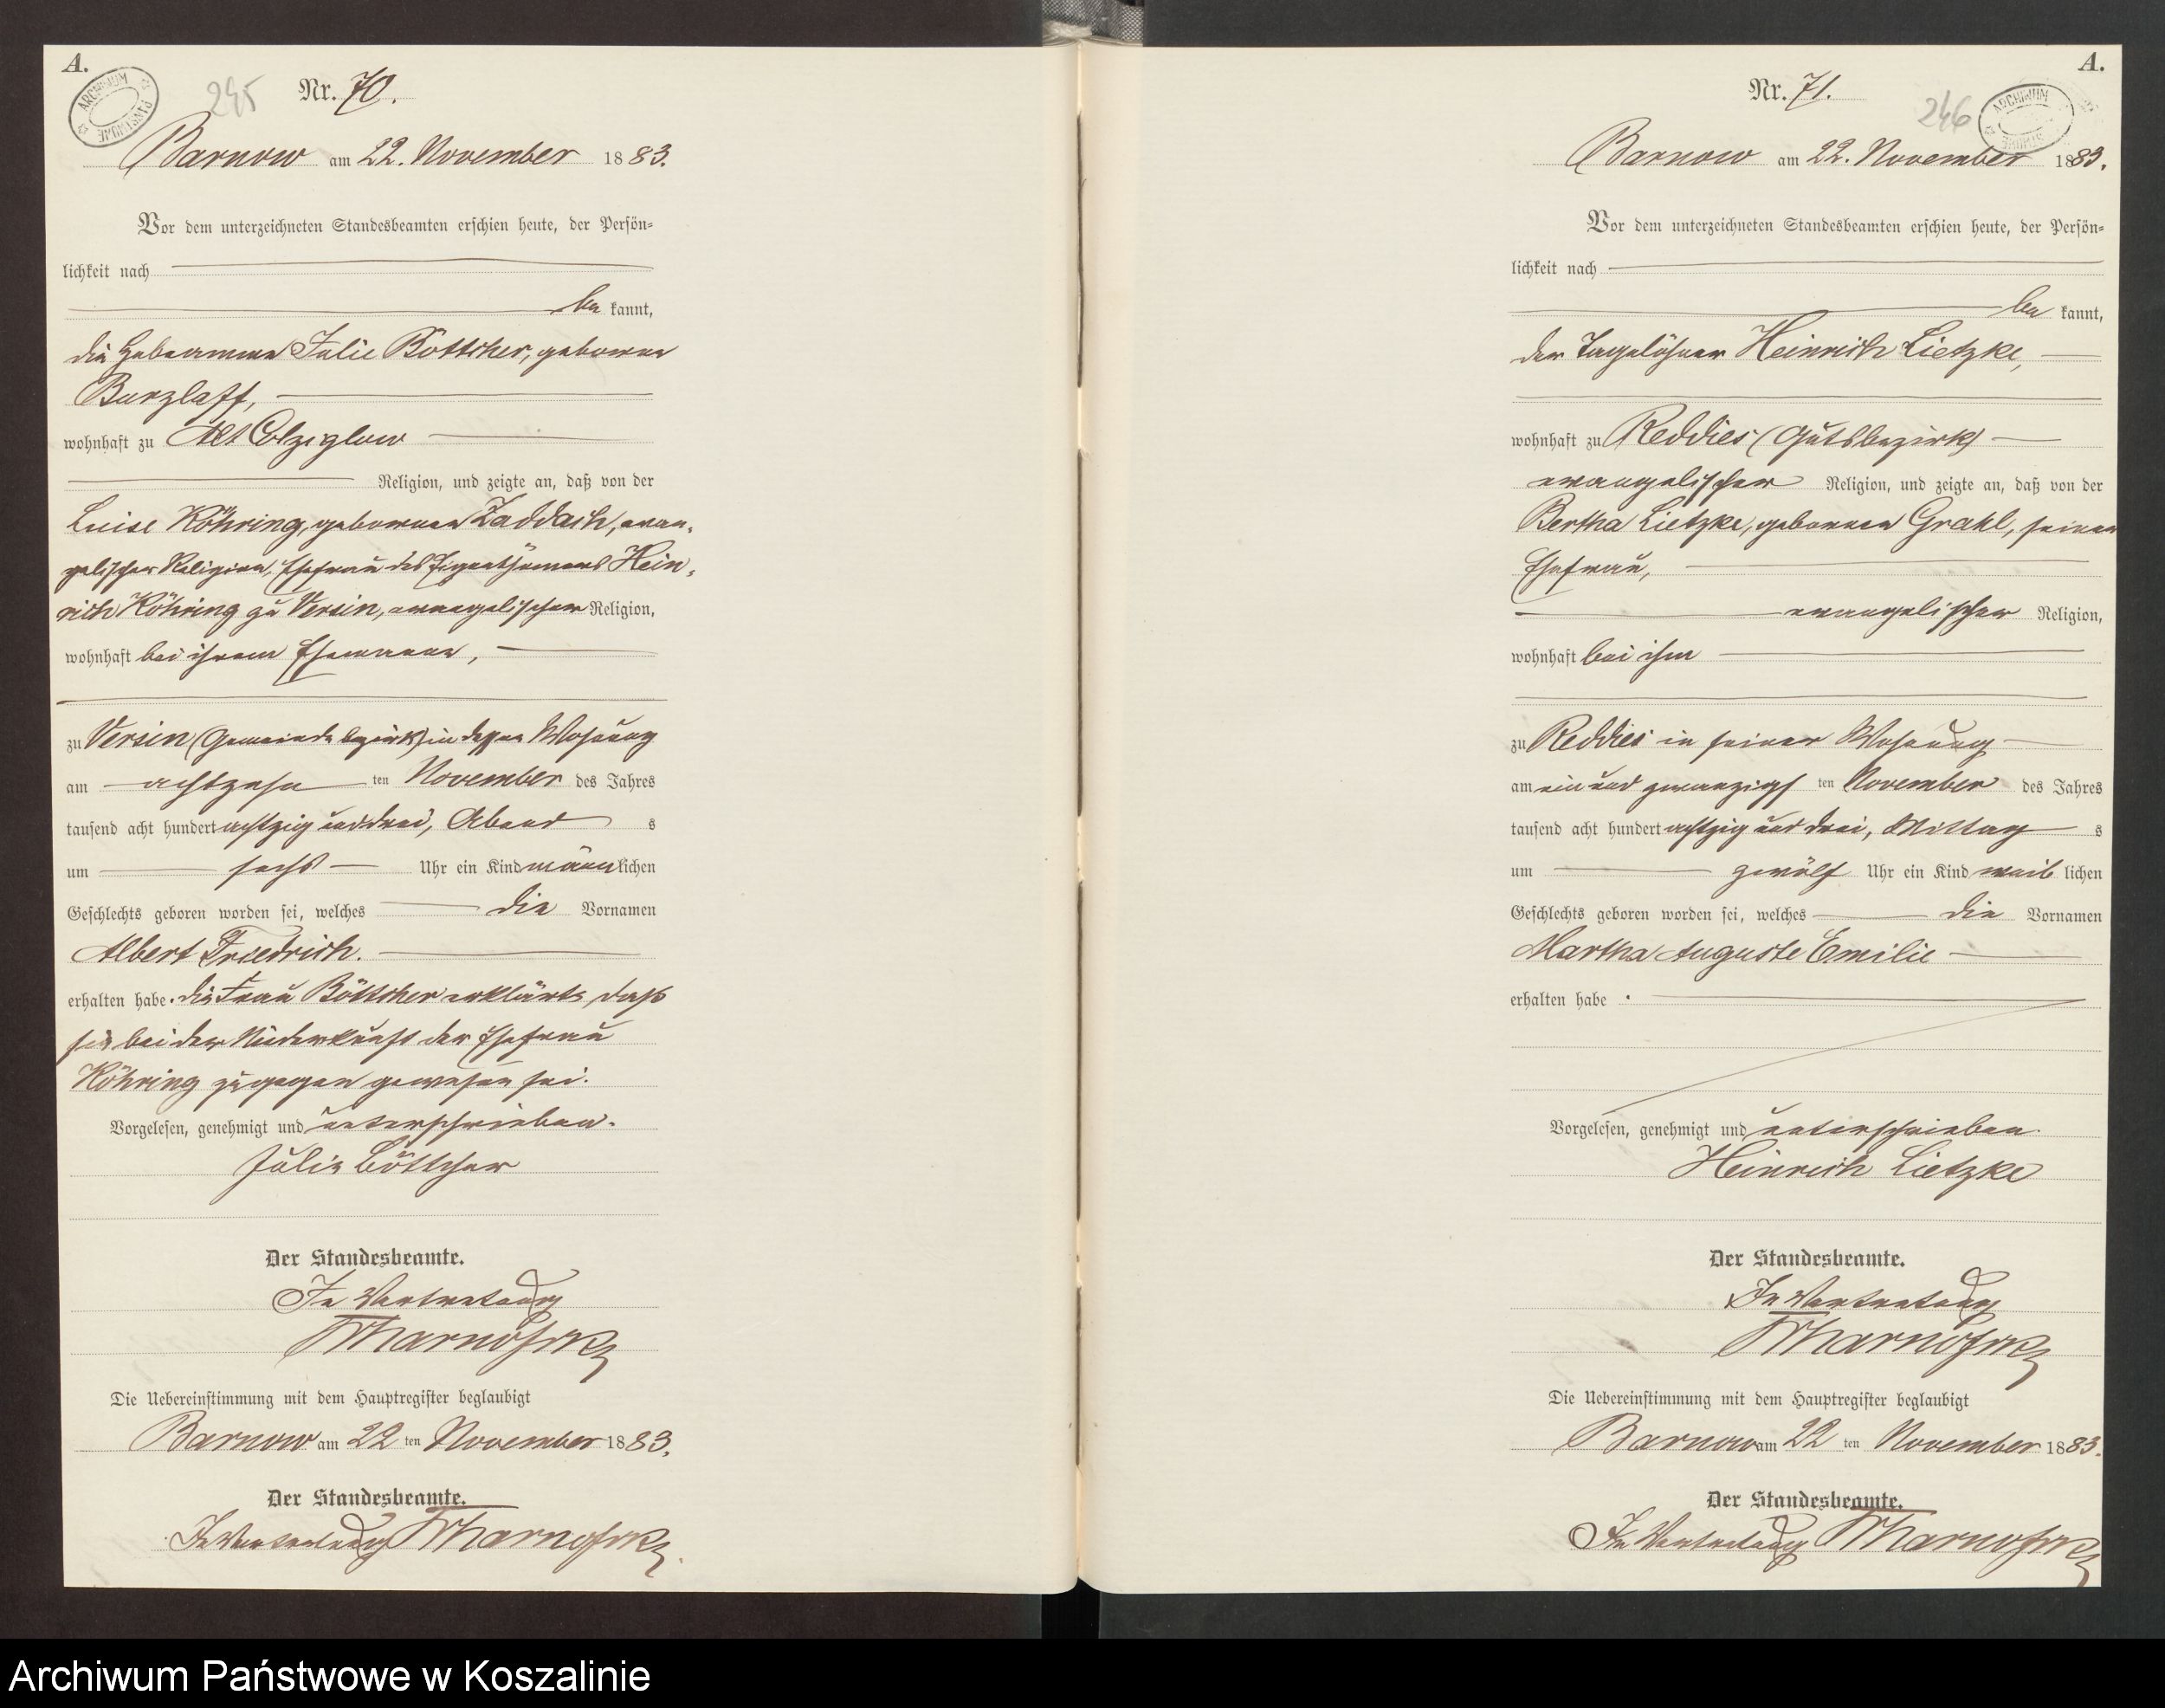 A.
ARCHIWUM PAŃSTWOWE
245
Nr. 70.
Barnow am 22. November 1883.
Vor dem unterzeichneten Standesbeamten erschien heute, der Persön-
lichkeit nach
be kannt,
die Hebeamme Julie Böttcher, geborne
Burzlaff,
wohnhaft zu Alt Colziglow
Religion, und zeigte an, daß von der
Luise Köhring, gebornen Zaddach, evan-
gelischer Religion, Ehefrau des Eigenthümers Hein-
rich Köhring zu Versin, evangelischer Religion,
wohnhaft bei ihrem Ehemanne,
zu Versin (Gemeindebezirk) in dessen Wohnung
am achtzehn ten November des Jahres
tausend acht hundert achtzig und drei, Abend s
um sechs Uhr ein Kind männlichen
Geschlechts geboren worden sei, welches die Vornamen
Albert Friedrich.
erhalten habe. Die Frau Böttcher erklärte, daß
sie bei der Niederkunft der Ehefrau
Köhring zugegen gewesen sei.
Vorgelesen, genehmigt und unterschrieben.
Julie Böttcher
Der Standesbeamte.
In Vertretung
Die Uebereinstimmung mit dem Hauptregister beglaubigt
Barnow am 22 ten November 1883.
Der Standesbeamte.
In Vertretung
A.
ARCHIWUM
246
Nr. 71.
Barnow am 22. November 1883.
Vor dem unterzeichneten Standesbeamten erschien heute, der Persön-
lichkeit nach
be kannt,
der Tagelöhner Heinrich Lietzke,
wohnhaft zu Reddies (Gutsbezirk)
evangelischer Religion, und zeigte an, daß von der
Bertha Lietzke, gebornen Grahl, seiner
Ehefrau,
evangelischer Religion,
wohnhaft bei ihm
zu Reddies in seiner Wohnung
am ein und zwanzigs ten November des Jahres
tausend acht hundert achtzig und drei, Mittag s
um zwölf Uhr ein Kind weib lichen
Geschlechts geboren worden sei, welches die Vornamen
Martha Auguste Emilie
erhalten habe.
Vorgelesen, genehmigt und unterschrieben.
Heinrich Lietzke
Der Standesbeamte.
In Vertretung
Die Uebereinstimmung mit dem Hauptregister beglaubigt
Barnow am 22 ten November 1883.
Der Standesbeamte.
In Vertretung
Archiwum Państwowe w Koszalinie